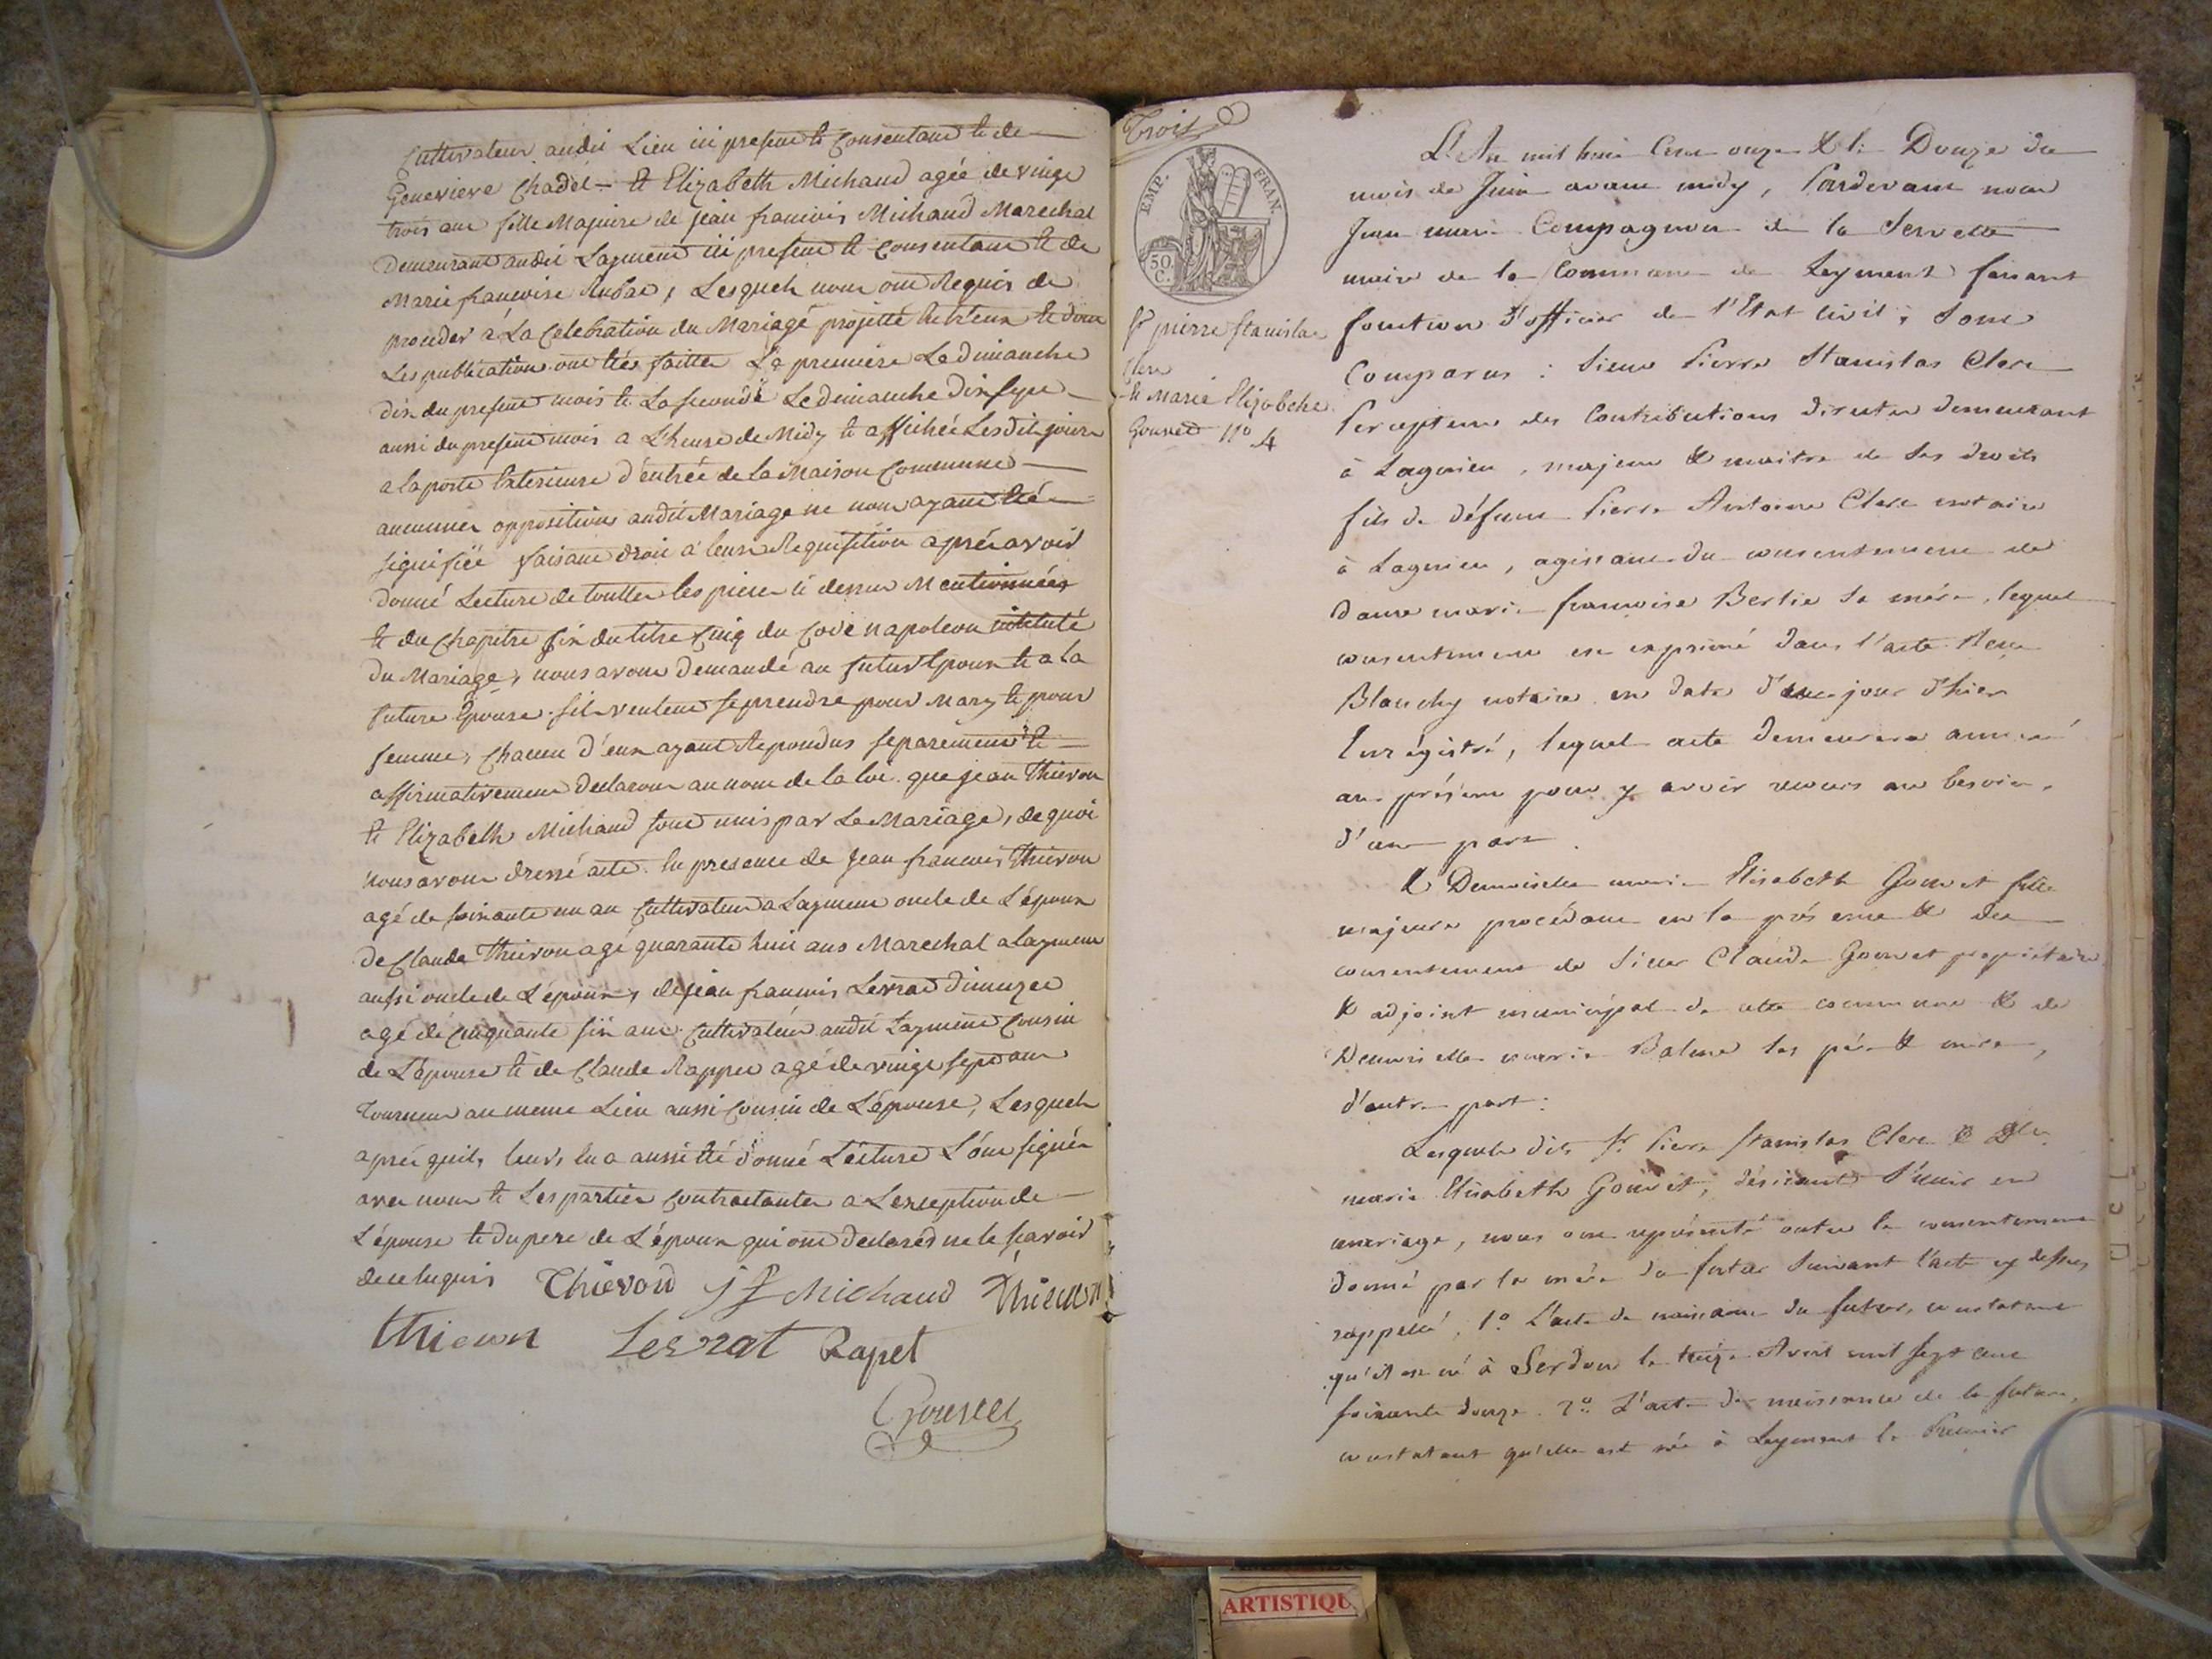 Cultivateur audit Lieu ici present et Consentant et de
Genevieve Chadel et Elizabeth Michaud agée de vingt
trois ans fille Majeure de jean francois Michaud Marechal
Demeurant audit Laymens ici present et Consentant et de
Marie francoise Lesquels nous ont Requis de
proceder a La Celebration du Mariage projetté entreux et dont
Les publications ont étés faittes La premiere Le dimanche
dix du present mois et La seconde Le dimanche dix sept
aussi du present mois a L'heure de Midy et affichée Lesdits jours
a la porte Exterieure d'entrée de la Maison Commune
aucunnes oppositions audit Mariage ne nous ayant été
signifiée faisant droit a leurs Requisition aprés avoir
donné Lecture de touttes les pieces ci dessus Mentionnées
et du Chapitre six du titre Cinq du Code napoleon intitulé
du Mariage, nous avons demandé au futur Epoux et a la
future Epouse s'ils veulent se prendre pour Mary et pour
femme, Chacun d'eux ayant Repondus separement et
affirmativement Declarons au nom de la loi que jean Thievon
et Elizabeth Michaud sont unis par Le Mariage, de quoi
Nous avons dressé acte En presence de Jean francois Thievon
agé de soixante un an Cultivateur a Laymens oncle de L'époux
de Claude Thievon agé quarante huit ans Marechal a laymens
aussi oncle de L'époux, de jean francois Levrat
agé de Cinquante six ans Cultivateur audit Laymens Cousin
de L'épouse et de Claude Rappet agé de vingt sept ans
Tourneur au meme Lieu aussi Cousin de L'épouse, Lesquels
aprés quil, leurs, en a aussi été donné Lecture L'ont signés
avec nous et Les parties Contractantes a L'exception de
L'épouse et du pere de L'époux qui ont Declarés ne le sçavoir
de ce Enquis Thievon jf Michaud Thievon
thievon Levrat Rapet
Gouvet
Trois
EMP. FRAN.
50 C.
Sr pierre Stanislas
Clerc
et Marie Elizabethe
Gouvet No 4
L'An mil huit Cent onze & le Douze du
mois de Juin avant midy, Pardevant nous
Jean marie Compagnon de la Servette
maire de la Commune de Leyment faisant
fonction d'officier de l'Etat Civil, Sont
Comparus : Sieur Pierre Stanislas Clerc
Percepteur des Contributions directes demeurant
à Lagnieu, majeur & maitre de ses droits
fils de défunt Pierre Antoine Clerc notaire
à Lagnieu, agissant du consentement de
dame marie francoise Bertie sa mère, lequel
consentement est exprimé dans l'acte Reçu
Blanchy notaire en date du jour d'hier
Enrégistré, lequel acte demeurera annexé
au présent pour y avoir recours au besoin,
d'une part.
& Demoiselle marie Elisabeth Gouvet fille
majeure procédant en la présence & du
consentement de Sieur Claude Gouvet propriétaire
& adjoint municipal de cette commune & de
Demoiselle marie Balme ses père & mère,
d'autre part :
Lesquels dits Sr. Pierre Stanislas Clerc & Dlle
marie Elisabeth Gouvet, désirant s'unir en
mariage, nous ont représenté outre le consentement
donné par la mère du futur suivant l'acte cy dessus
rappellé, 1o. L'acte de naissance du futur, constatant
qu'il est né à Serdon le treize Avril mil sept cent
soixante douze. 2o. L'acte de naissance de la future,
constatant qu'elle est née à Leyment le Premier
ARTISTIQU